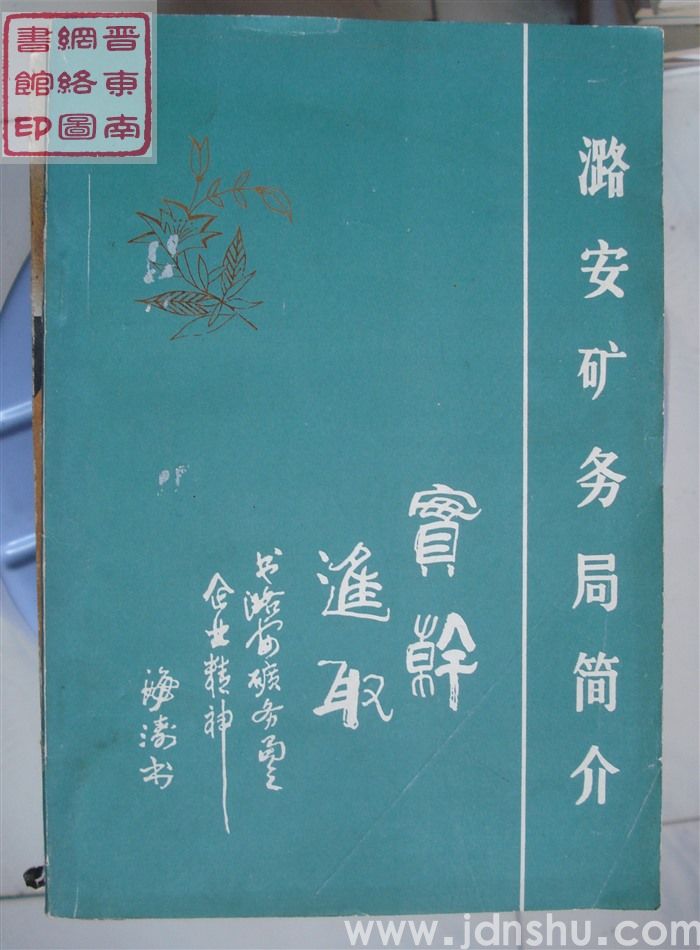 晋东南
網絡圖
書館印
潞安矿务局简介
實幹
進取
书潞安礦务局之
企业精神
海涛书
www.jdnshu.com